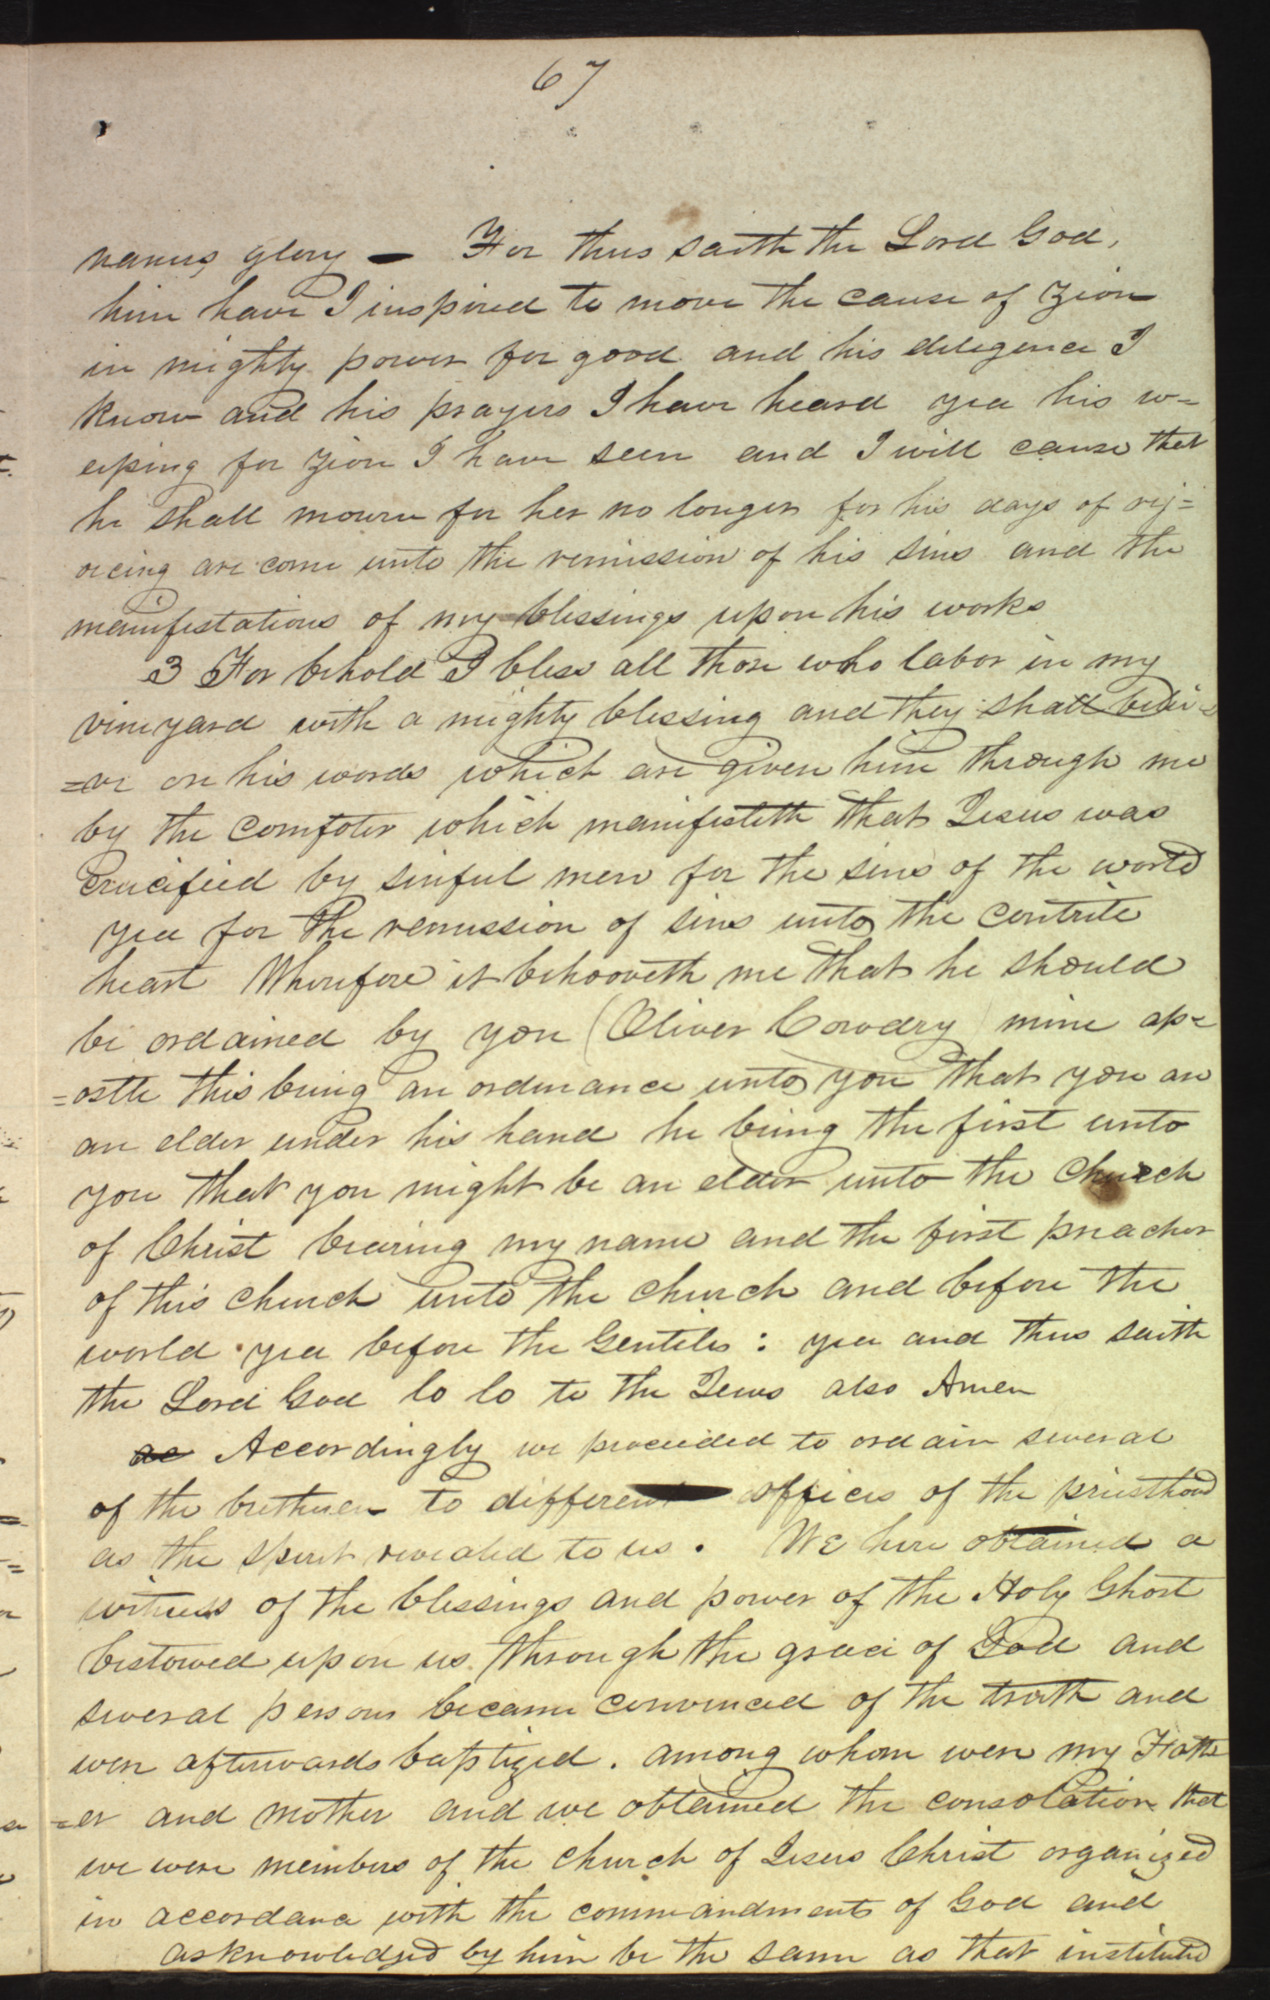 67
names glory — For thus saith the Lord God,
him have I inspired to move the cause of Zion
in mighty power for good and his deligence I
know and his prayers I have heard yea his w=
eeping for Zion I have seen and I will cause that
he shall mourn for her no longer for his days of rej=
oicing are come unto the remission of his sins and the
manifestations of my blessings upon his works
3 For behold I bless all those who labor in my
vineyard with a mighty blessing and they shall belei=
=ve on his words which are given him through me
by the comfoter which manifesteth that Jesus was
crucified by sinful men for the sins of the world
yea for the remission of sins unto the contrite
heart Wherefore it behooveth me that he should
be ordained by you (Oliver Cowdry) mine ap=
=ostle this being an ordinance unto you that you are
an elder under his hand he being the first unto
you that you might be an elder unto the church
of Christ bearing my name and the first preacher
of this church unto the church and before the
world yea before the Gentiles: yea and thus saith
the Lord God lo lo to the Jews also Amen
ac Accordingly we proceeded to ordain several
of the brethren to different offices of the priesthood
as the spirit revealed to us. We here obtained a
witness of the blessings and power of the Holy Ghost
bestowed upon us through the grace of God and
several persons became convinced of the truth and
were afterwards baptized. among whom were my Fath
=er and mother and we obtained the consolation that
we were members of the church of Jesus Christ organized
in accordance with the commandments of God and
asknowledged by him be the same as that instituted